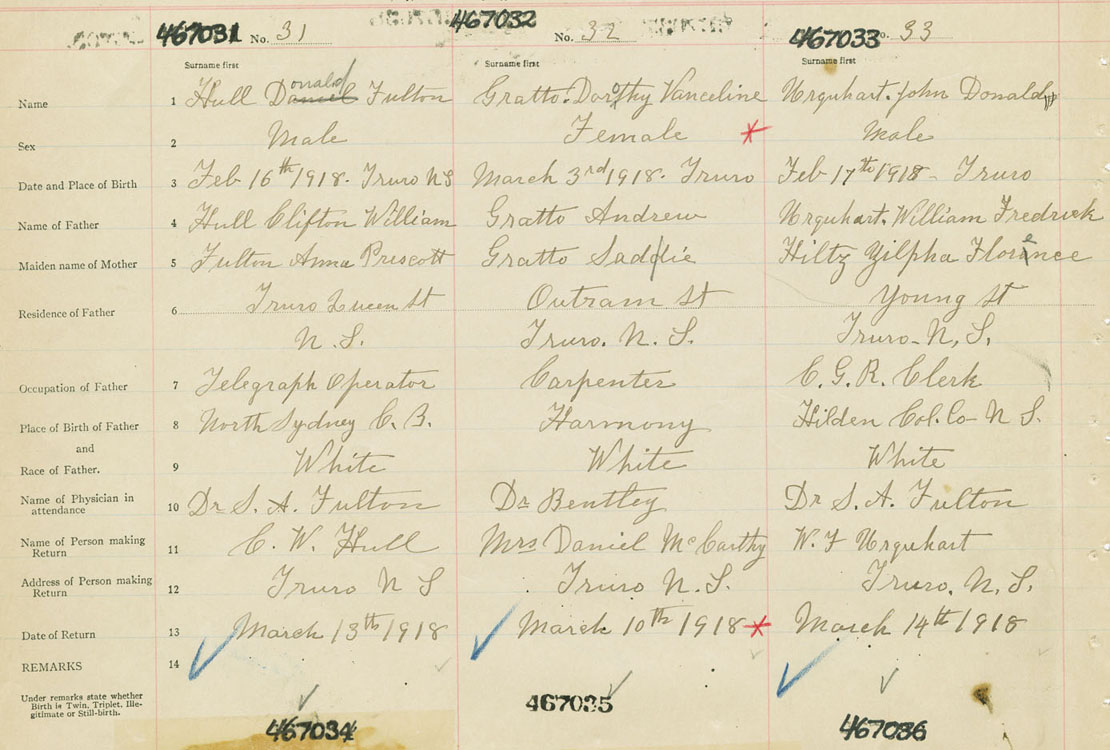 467031 No. 31 467032 No. 32 467033 o. 33
Surname first Surname first Surname first
Name 1 Hull Daniel Donald Fulton Gratto. Dorothy Vanceline Urquhart. John Donald
Sex 2 Male Female Male
Date and Place of Birth 3 Feb 16th 1918. Truro NS March 3rd 1918. Truro Feb 17th 1918 - Truro
Name of Father 4 Hull Clifton William Gratto Andrew Urquhart. William Fredrick
Maiden name of Mother 5 Fulton Anna Prescott Gratto Saddie Hiltz Zilpha Florence
Residence of Father 6 Truro Queen St Outram St Young St
N. S. Truro. N. S. Truro - N, S.
Occupation of Father 7 Telegraph Operator Carpenter C. G. R. Clerk
Place of Birth of Father 8 North Sydney C. B. Harmony Hilden Col. Co - N S.
and
Race of Father. 9 White White White
Name of Physician in attendance 10 Dr S. A. Fulton Dr Bentley Dr S. A. Fulton
Name of Person making Return 11 C. W. Hull Mrs Daniel McCarthy W. F Urquhart
Address of Person making Return 12 Truro N S Truro N. S. Truro, N, S.
Date of Return 13 March 13th 1918 March 10th 1918 March 14th 1918
REMARKS 14
Under remarks state whether
Birth is Twin, Triplet, Ille-
gitimate or Still-birth.
467034 467035 467036